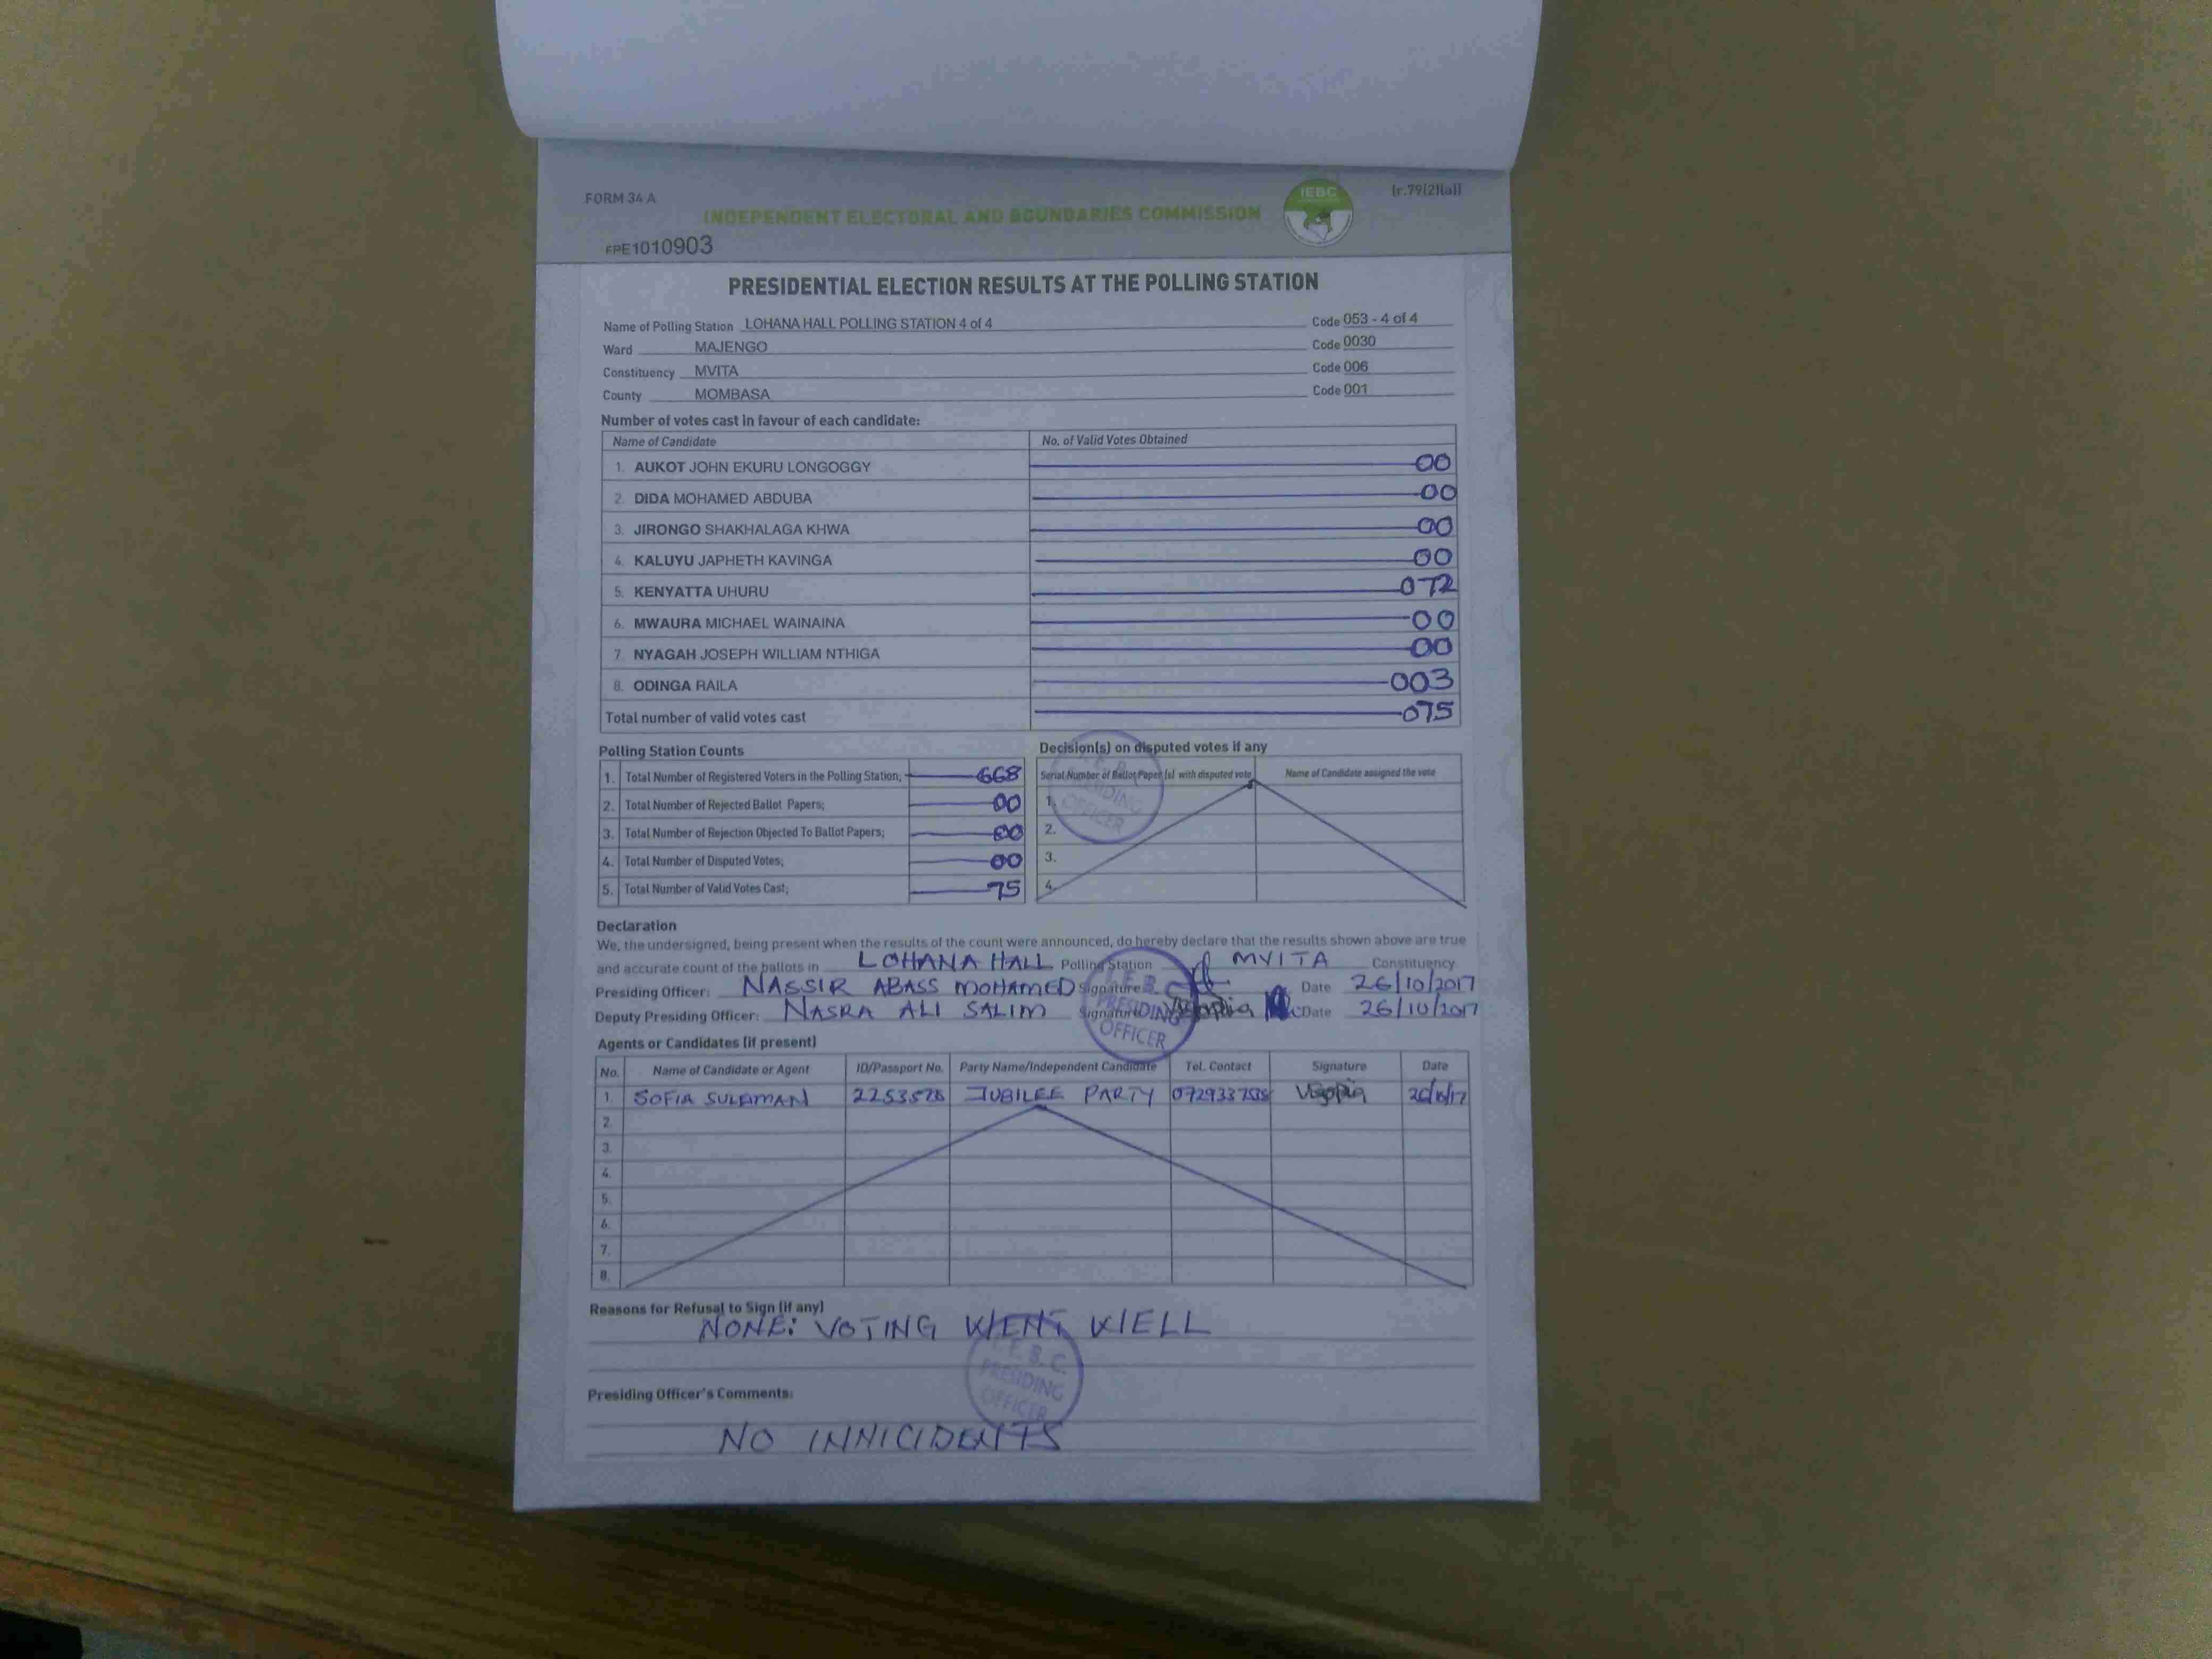 FORM 34 A
[r.79(2)(a)]
IEBC
INDEPENDENT ELECTORAL AND BOUNDARIES COMMISSION
FPE1010903
PRESIDENTIAL ELECTION RESULTS AT THE POLLING STATION
Name of Polling Station LOHANA HALL POLLING STATION 4 of 4 Code 053 - 4 of 4
Ward MAJENGO Code 0030
Constituency MVITA Code 006
County MOMBASA Code 001
Number of votes cast in favour of each candidate:
Name of Candidate No. of Valid Votes Obtained
1. AUKOT JOHN EKURU LONGOGGY 00
2. DIDA MOHAMED ABDUBA 00
3. JIRONGO SHAKHALAGA KHWA 00
4. KALUYU JAPHETH KAVINGA 00
5. KENYATTA UHURU 072
6. MWAURA MICHAEL WAINAINA 00
7. NYAGAH JOSEPH WILLIAM NTHIGA 00
8. ODINGA RAILA 003
Total number of valid votes cast 075
Polling Station Counts
1. Total Number of Registered Voters in the Polling Station; 668
2. Total Number of Rejected Ballot Papers; 00
3. Total Number of Rejection Objected To Ballot Papers; 00
4. Total Number of Disputed Votes; 00
5. Total Number of Valid Votes Cast; 75
Decision(s) on disputed votes if any
Serial Number of Ballot Paper (s) with disputed vote Name of Candidate assigned the vote
1.
2.
3.
4.
PRESIDING
OFFICER
Declaration
We, the undersigned, being present when the results of the count were announced, do hereby declare that the results shown above are true
and accurate count of the ballots in LOHANA HALL Polling Station MVITA Constituency
Presiding Officer: NASSIR ABASS MOHAMED Signature Date 26/10/2017
Deputy Presiding Officer: NASRA ALI SALIM Signature Date 26/10/2017
PRESIDING
OFFICER
Agents or Candidates (if present)
No. Name of Candidate or Agent ID/Passport No. Party Name/Independent Candidate Tel. Contact Signature Date
1. SOFIA SULEIMAN JUBILEE PARTY 26/10/17
2.
3.
4.
5.
6.
7.
8.
Reasons for Refusal to Sign (if any)
NONE: VOTING WENT WELL
I. E. B. C.
PRESIDING
OFFICER
Presiding Officer's Comments:
NO INNICIDENTS